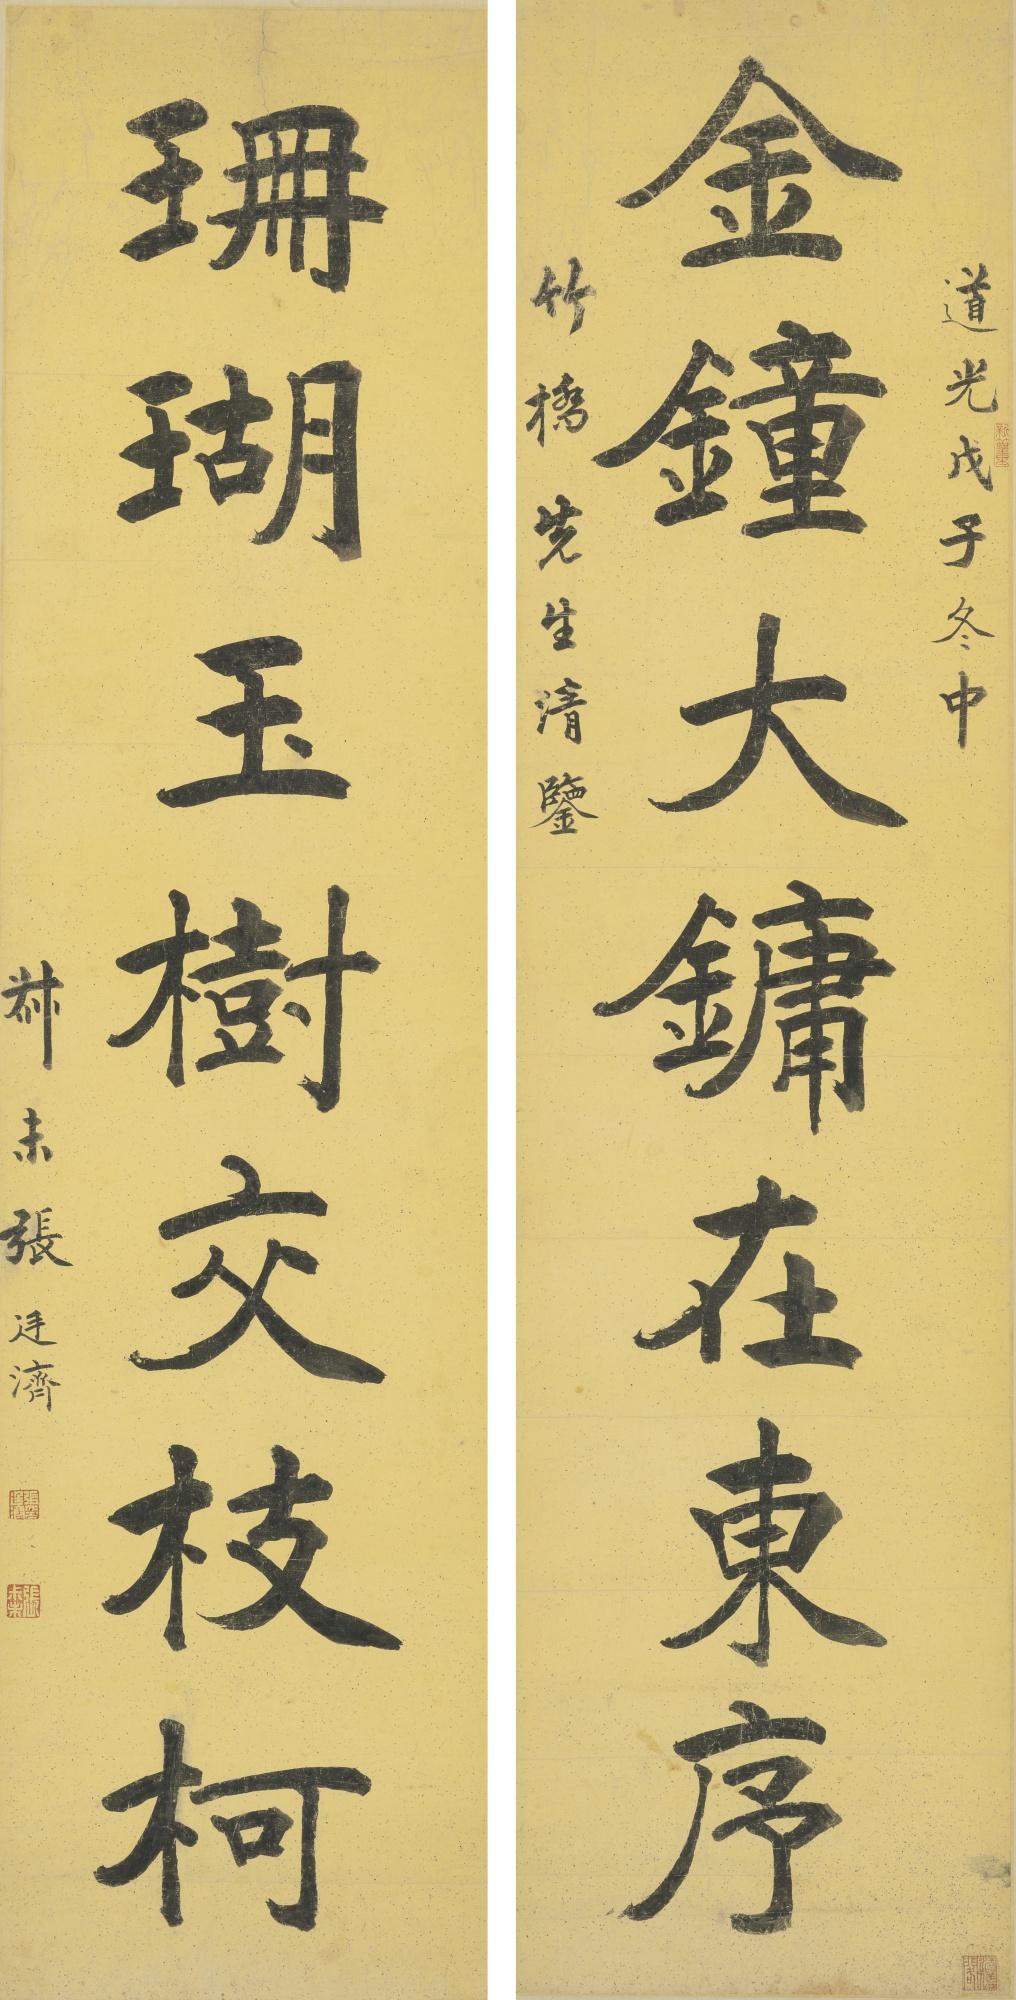 道光戊子冬中
金鐘大鏞在東序
竹橋先生清鑒
珊瑚玉樹交枝柯
叔未張廷濟